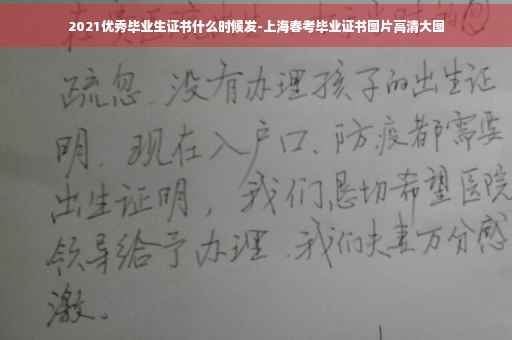 2021优秀毕业生证书什么时候发-上海春考毕业证书图片高清大图
疏忽、没有办理孩子的出生证
明、现在入户口、防疫都需要
出生证明，我们恳切希望医院
领导给予办理、我们夫妻万分感
激。